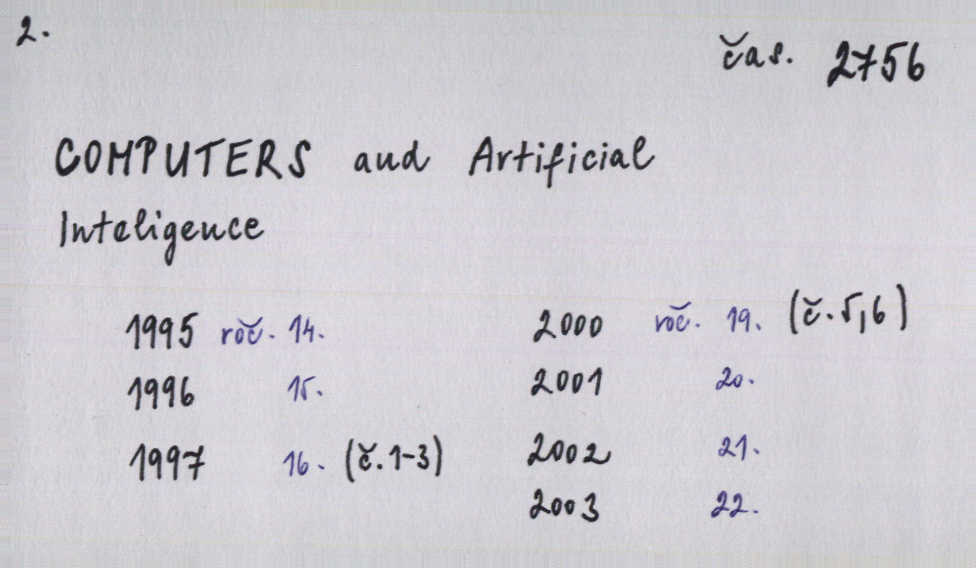 2.
čas. 2756
COMPUTERS and Artificial
Inteligence
1995 roč. 14. 2000 roč. 19. (č. 5,6)
1996 15. 2001 20.
1997 16. (č. 1-3) 2002 21.
2003 22.